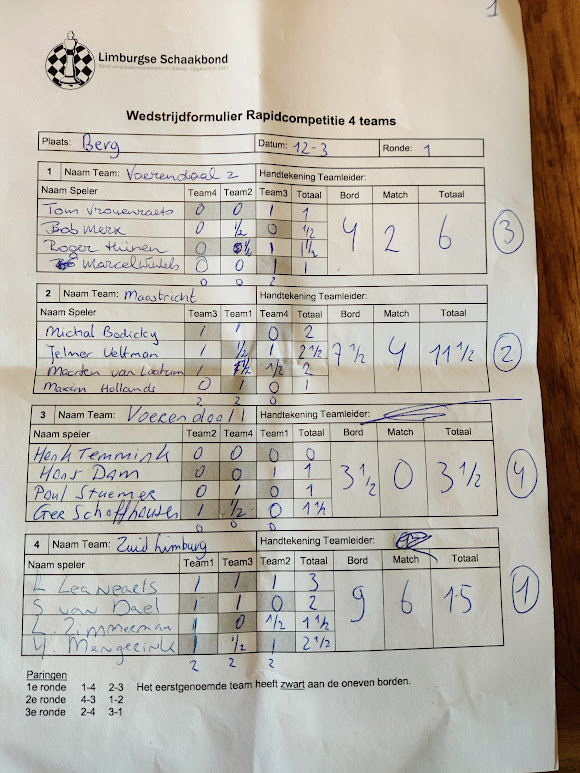 1
Limburgse Schaakbond
Wedstrijdformulier Rapidcompetitie 4 teams
Plaats: Berg Datum: 12-3 Ronde: 1
1 Naam Team: Voerendaal 2 Handtekening Teamleider:
Naam Speler Team4 Team2 Team3 Totaal Bord Match Totaal
Tom Vrouenraets 0 0 1 1
Bob Merx 0 1/2 0 1/2
Roger Hünen 0 1/2 1 1 1/2
Marcel 0 0 1 1
4 2 6 3
0 0 2
2 Naam Team: Maastricht Handtekening Teamleider:
Naam Speler Team3 Team1 Team4 Totaal Bord Match Totaal
Michal Bodicky 1 1 0 2
Jelmer Veltman 1 1/2 1 2 1/2
Maarten van Laatum 1 1/2 1/2 2
Maxim Hollands 0 1 0 1
7 1/2 4 11 1/2 2
2 2 0
3 Naam Team: Voerendaal 1 Handtekening Teamleider:
Naam speler Team2 Team4 Team1 Totaal Bord Match Totaal
Henk Temmink 0 0 0 0
Hans Dam 0 0 1 1
Paul Stuemer 0 1 0 1
Ger Schafhausen 1 1/2 0 1 1/2
3 1/2 0 3 1/2 4
0 0 0
4 Naam Team: Zuid Limburg Handtekening Teamleider:
Naam speler Team1 Team3 Team2 Totaal Bord Match Totaal
1 1 1 3
S van Dael 1 1 0 2
Zimmerman 1 0 1/2 1 1/2
Mengerink 1 1/2 1 2 1/2
9 6 15 1
2 2 2
Paringen
1e ronde 1-4 2-3 Het eerstgenoemde team heeft zwart aan de oneven borden.
2e ronde 4-3 1-2
3e ronde 2-4 3-1